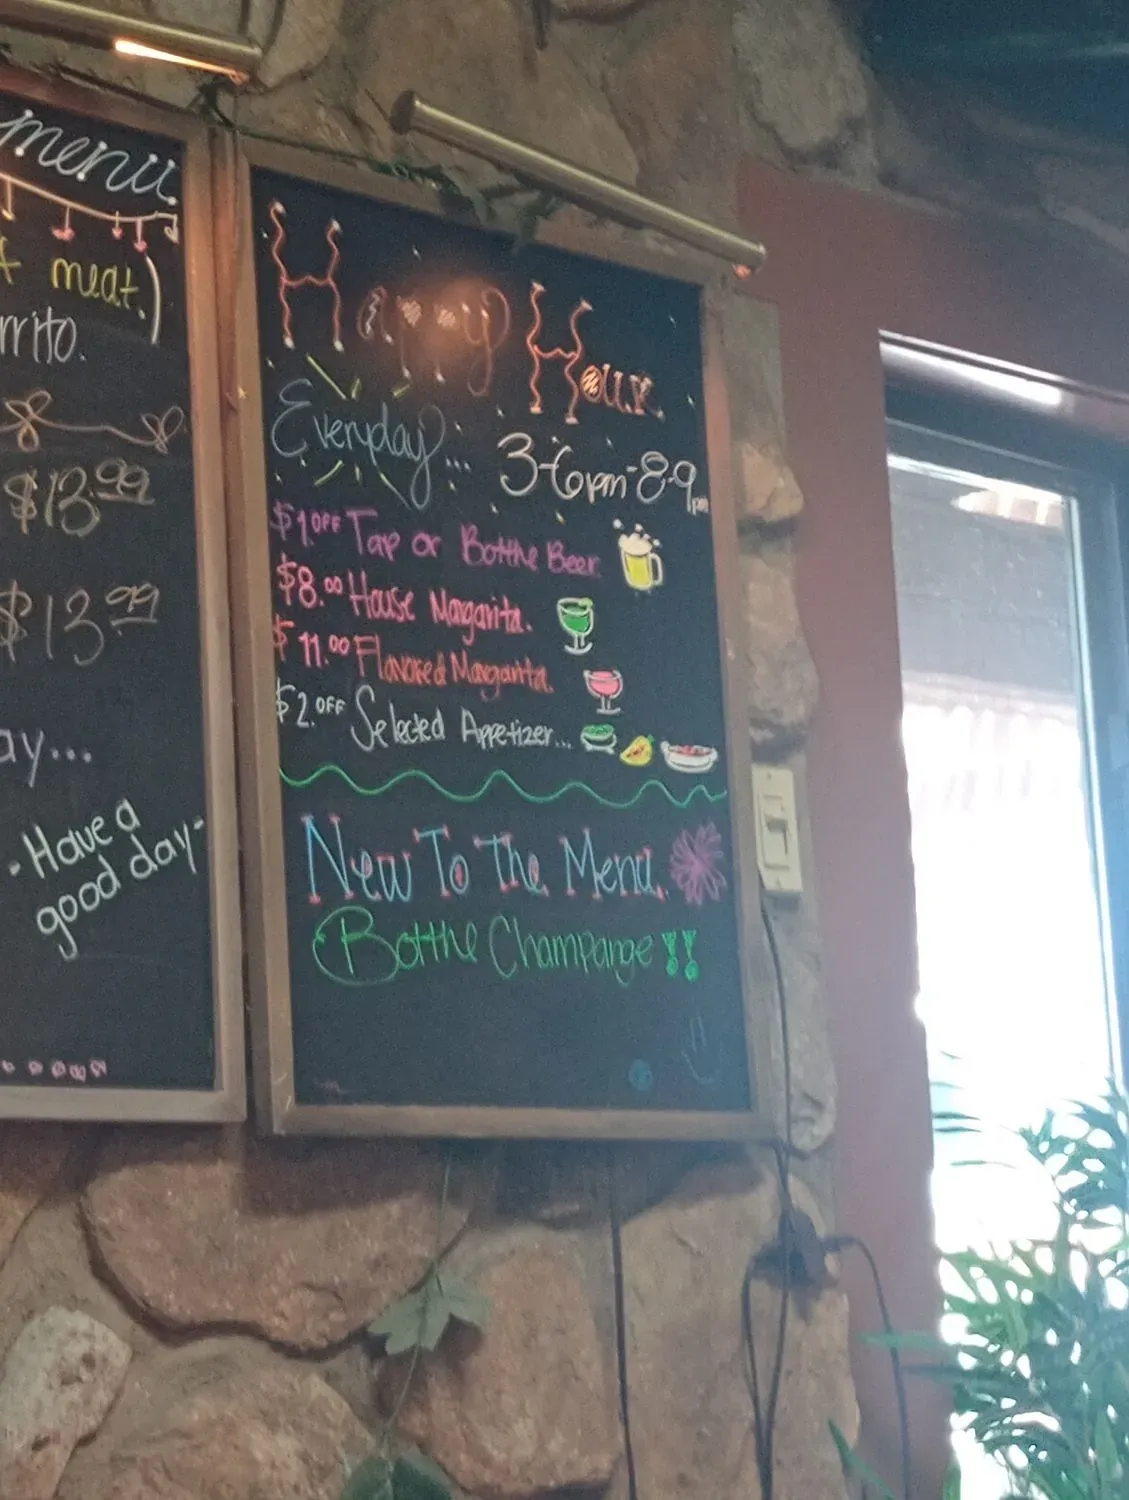 menu
meat.)
rrito.
$13.99
$13.99
ay...
-Have a
good day-
Happy Hour
Everyday... 3-6pm-8-9pm
$1.OFF Tap or Botthe Beer.
$8.00 House Margarita.
$11.00 Flavored Margarita.
$2.OFF Selected Appetizer...
New To The Menu.
Botthe Champange!!